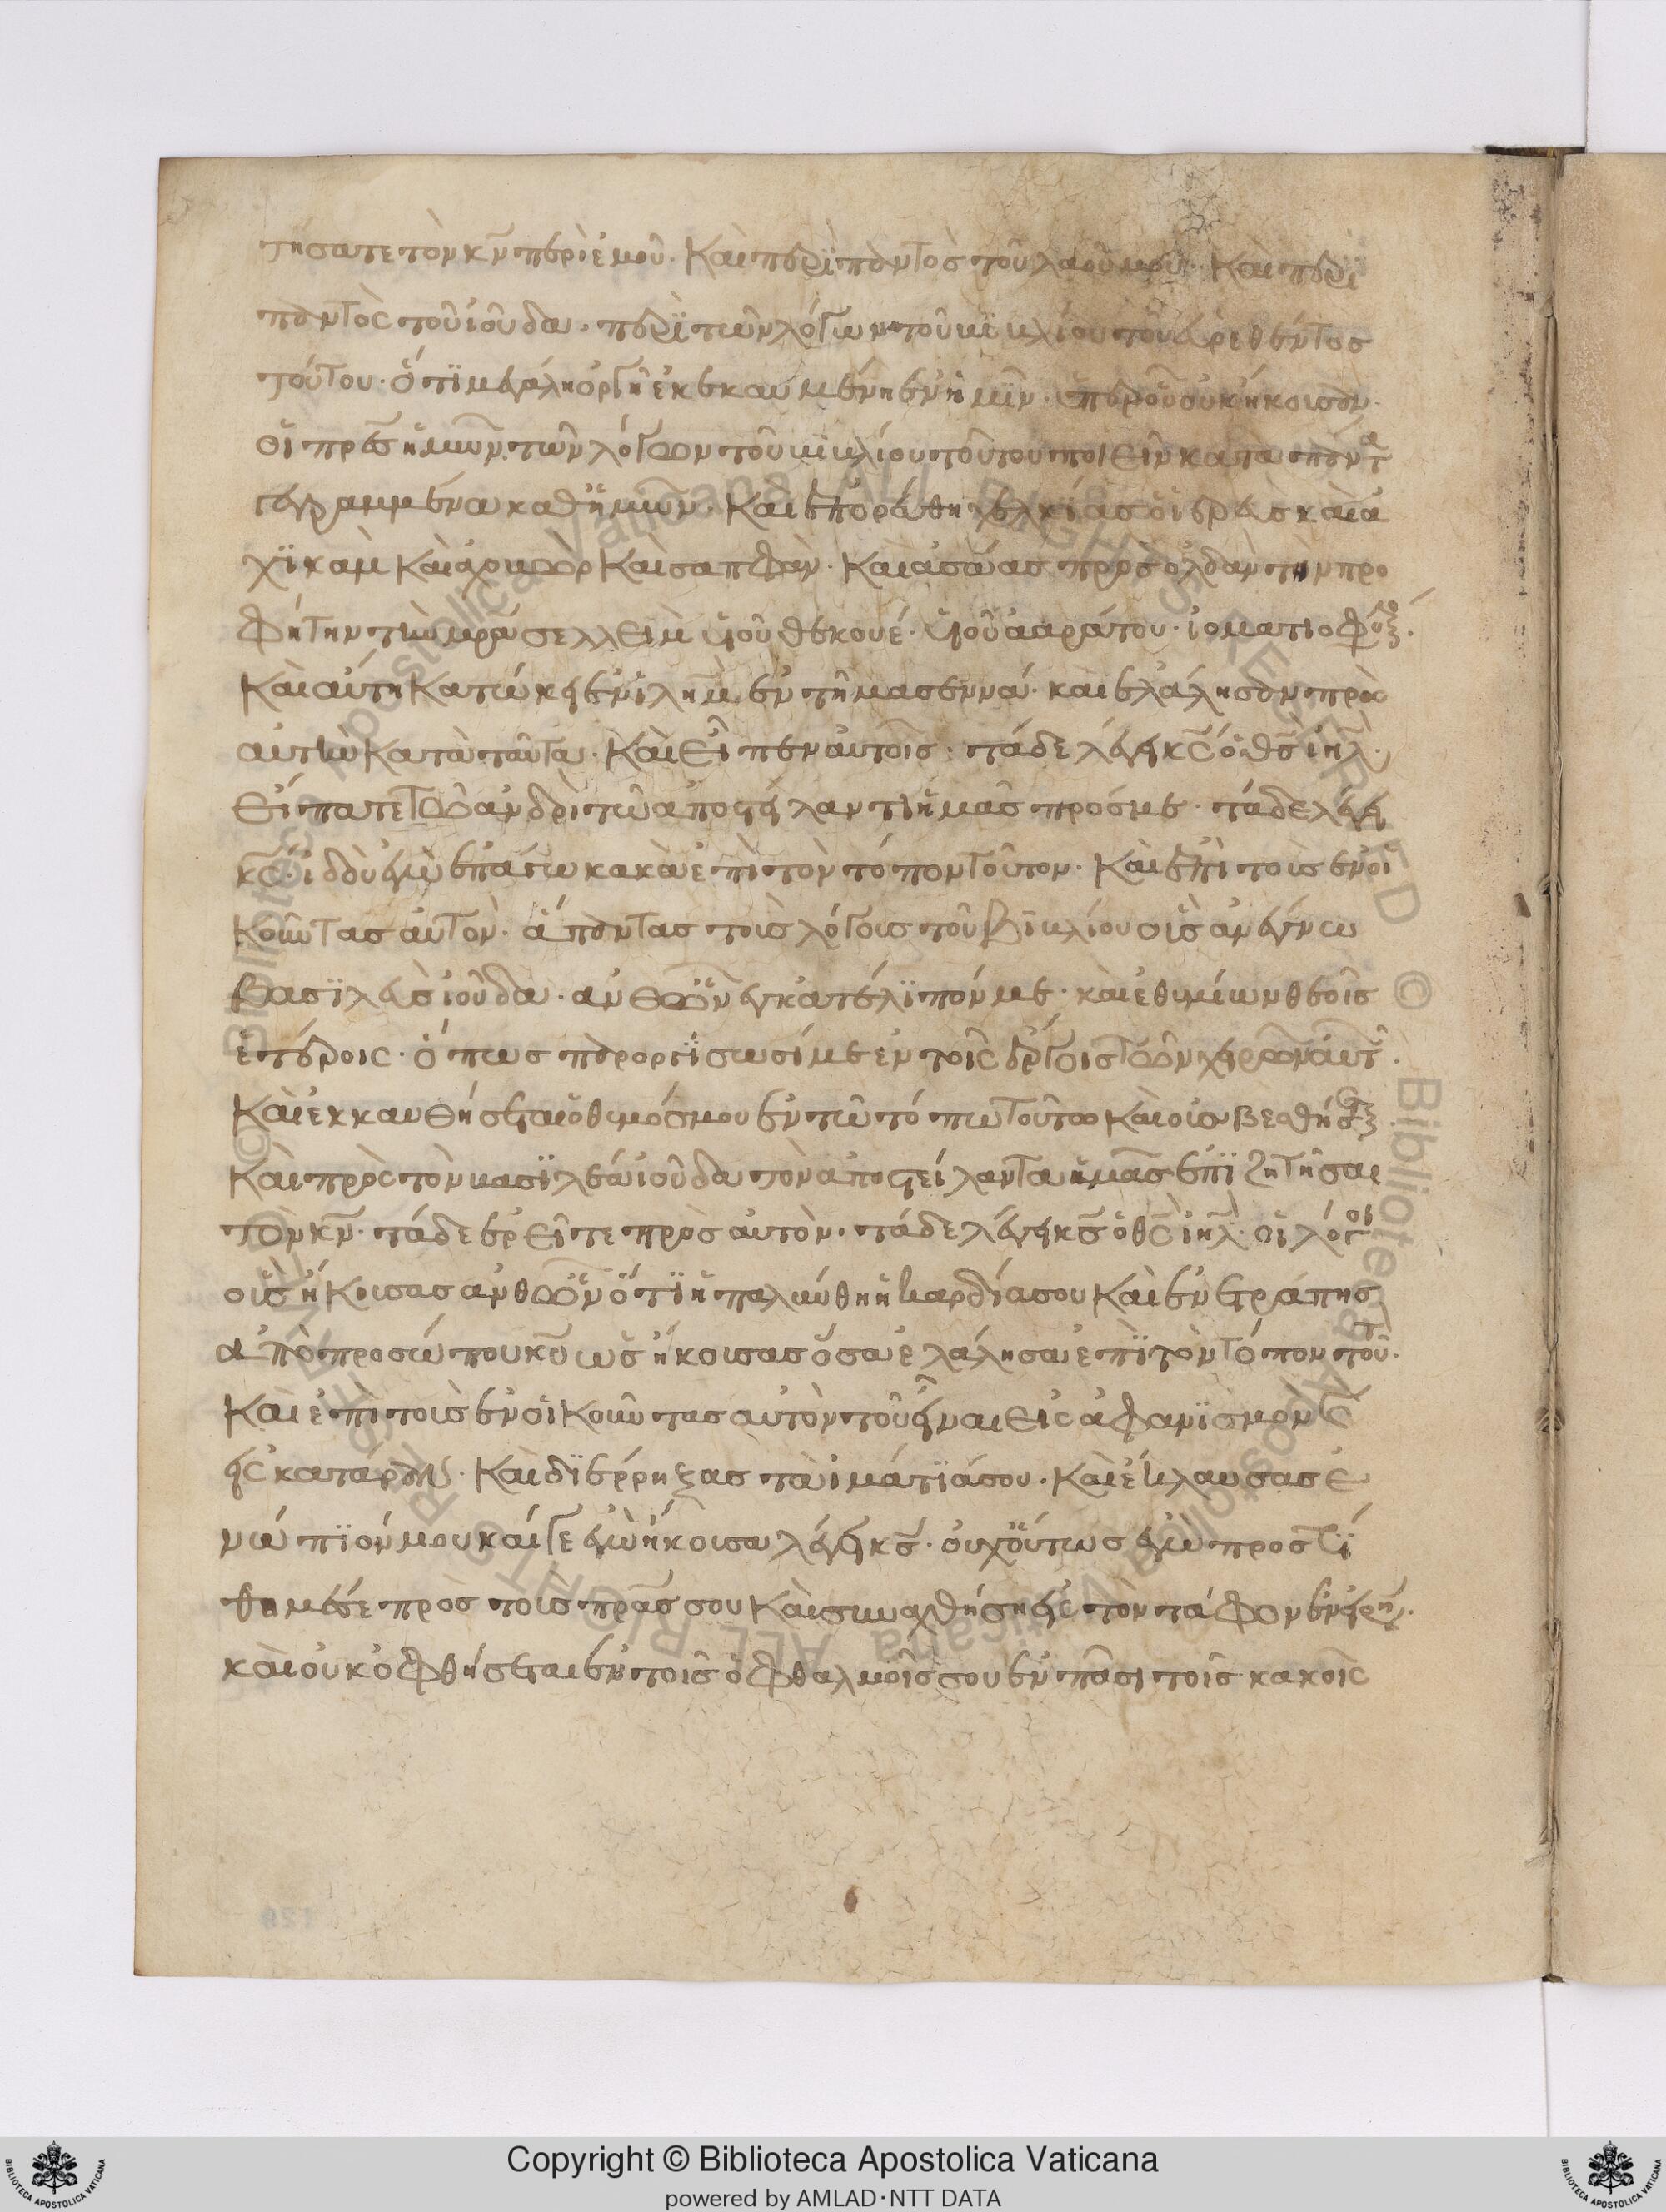 τήσατε τὸν κν̄ περὶ ἐμοῦ· καὶ περὶ παντὸς τοῦ λαοῦ μου· καὶ περὶ
παντὸς τοῦ ἰούδα· περὶ τῶν λόγων τοῦ βιβλίου τοῦ εὑρεθέντος
τούτου· ὅτι μεγάλη ὀργὴ ἐκκεκαυμένη ἐν ἡμῖν· ὑπὲρ οὗ οὐκ ἤκουσαν·
οἱ πρ̄ες ἡμῶν τῶν λόγων τοῦ βιβλίου τούτου ποιεῖν κατὰ πάντα
γεγραμμένα καθ ἡμῶν· καὶ ἐπορεύθη χελκίας ὁ ἱερεὺς καὶ ἀ
χικὰμ καὶ ἀχοβὼρ καὶ σαπφὰν· καὶ ἀσαίας πρὸς ὀλδὰν τὴν προ
φῆτην τὴν μρ̄α σελλεὶμ υἱοῦ θεκουέ· υἱοῦ ἀαράτου· ἱοματιοφύ
καὶ αὕτη κατώκει ἐν ἰλημ̄ ἐν τῇ μασεννά· καὶ ἐλάλησαν πρὸς
αὐτὴν κατὰ ταῦτα· καὶ εἶπεν αὐτοῖς· τάδε λέγει κς̄ ὁ θς̄ ἰηλ̄·
εἴπατε τῶ ἀνδρὶ τῶ ἀποστείλαντι ἡμᾶς πρός με· τάδε λέγει
κς̄· ἰδοὺ ἐγὼ ἐπάγω κακὰ ἐπὶ τὸν τόπον τοῦτον· καὶ ἐπὶ τοὶς ἐνοι
κοῦντας αὐτὸν· ἅπαντας τοὶς λόγοις τοῦ βιβλίου οἷς ἀνέγνω
βασιλεὺς ἰούδα· ἀνθ ὧν ἐγκατέλιπόν με· καὶ ἐθυμίων θεοῖς
ἑτέροις· ὅπως παροργίσωσί με ἐν τοῖς ἔργοις τῶν χειρῶν αὐτ
καὶ ἐκκαυθήσεται ὁ θυμός μου ἐν τῶ τόπω τούτω καὶ οὐ σβεσθήσετ
καὶ πρὸς τὸν βασιλέα ἰούδα τὸν ἀποστείλαντα ἡμᾶς ἐπιζητῆσαι
τὸν κν̄· τάδε ἐρεῖτε πρὸς αὐτὸν· τάδε λέγει κς̄ ὁ θς̄ ἰηλ̄· οἱ λόγοι
οἷς ἤκουσας ἀνθ ὧν ὅτι ἡπαλύνθη ἡ καρδία σου καὶ ἐνετράπης
ἀπὸ προσώπου κῡ ὡς ἤκουσας ὅσα ἐλάλησα ἐπὶ τὸν τόπον τοῦτ
καὶ ἐπὶ τοὶς ἐνοικοῦντας αὐτὸν τοῦ εἶναι εἰς ἀφανισμὸν
εἰς κατάραν· καὶ διέρρηξας τὰ ἱμάτιά σου· καὶ ἔκλαυσας ἐ
νώπιόν μου καί γε ἐγὼ ἤκουσα λέγει κς̄· οὐχ οὕτως ἐγὼ προστί
θημί σε πρὸς τοὶς πρ̄ας σου καὶ συναχθήσῃ εἰς τὸν τάφον ἐν εἰρήν
καὶ οὐκ ὀφθήσεται ἐν τοῖς ὀφθαλμοῖς σου ἐν πᾶσι τοῖς κακοῖς
Copyright © Biblioteca Apostolica Vaticana
powered by AMLAD·NTT DATA